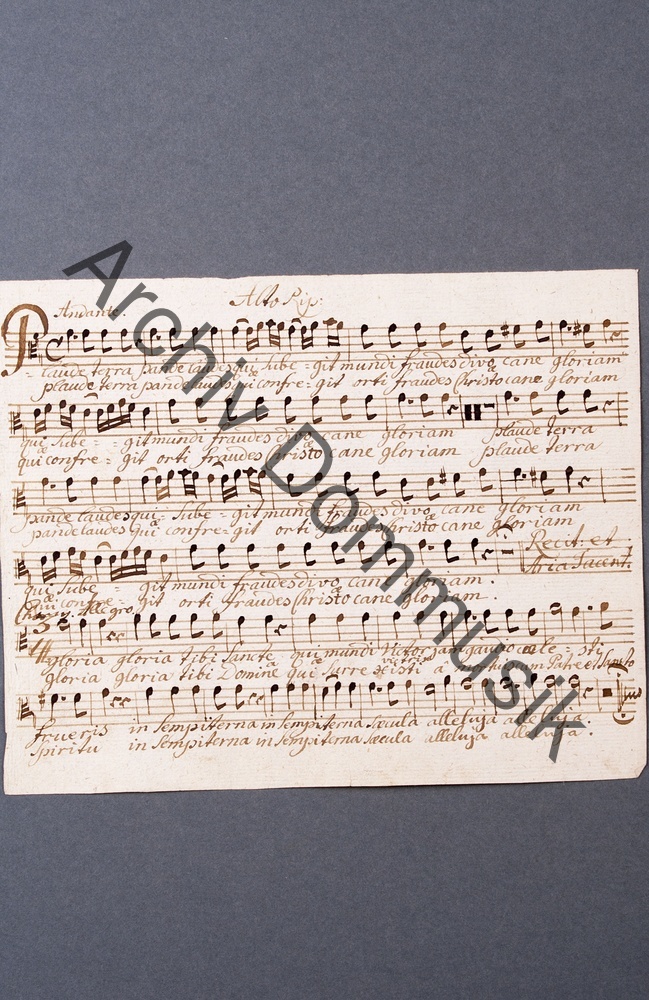 Alto Rip:
Andante.
Plaude terra pande laudes qui sube = git mundi fraudes divo cane gloriam
plaude terra pande laudes qui confre = git orti fraudes Christo cane gloriam
qui sube = = git mundi fraudes divo cane gloriam plaude terra
qui confre = git orti fraudes Christo cane gloriam plaude terra
pande laudes qui sube = git mundi fraudes divo cane gloriam
pande laudes qui confre = git orti fraudes Christo cane gloriam
Recit. et
Aria tacent.
qui sube git mundi fraudes divo cane gloriam.
qui confre = git orti fraudes Christo cane gloriam.
Allegro
gloria gloria tibi Sancte qui mundi Victor jam gaudio cæle = sti
gloria gloria tibi Domine qui surre xisti a mortuum Patre et Sancto
frueris in sempiterna in sempiterna sæcula alleluja alleluja.
spiritu in sempiterna in sempiterna sæcula alleluja alleluja.
Archiv Dommusik